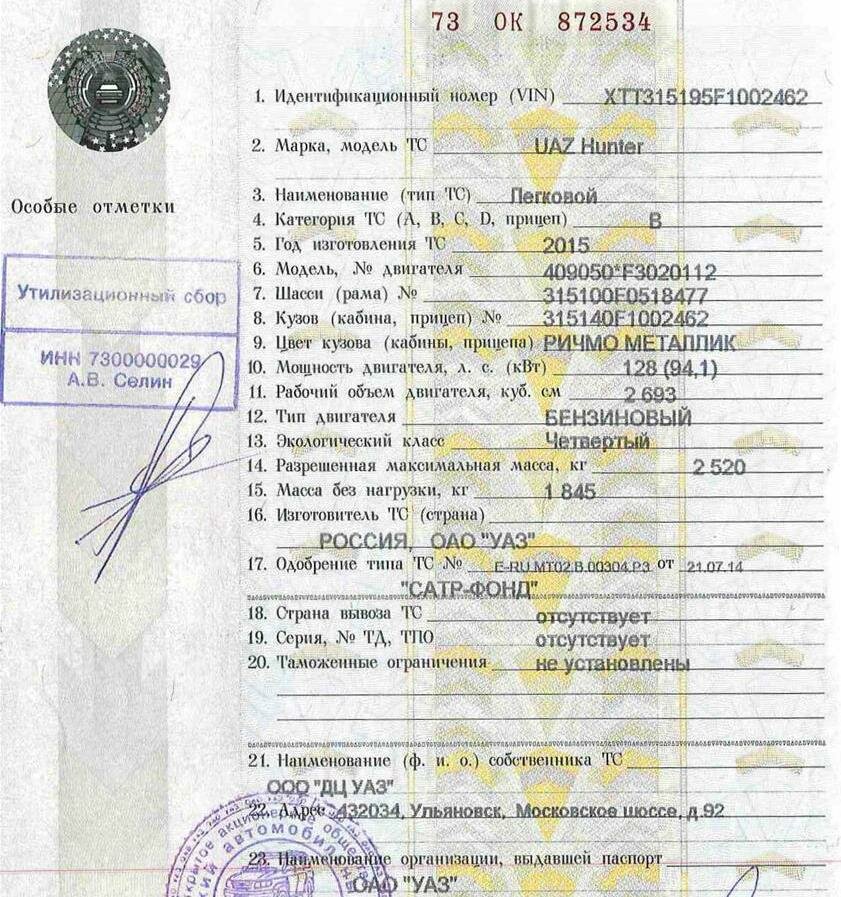 73 ОК 872534
1. Идентификационный номер (VIN) XTT315195F1002462
2. Марка, модель ТС UAZ Hunter
3. Наименование (тип ТС) Легковой
Особые отметки
4. Категория ТС (А, В, С, D, прицеп) В
5. Год изготовления ТС 2015
6. Модель, № двигателя 409050*F3020112
7. Шасси (рама) № 315100F0518477
Утилизационный сбор
8. Кузов (кабина, прицеп) № 315140F1002462
9. Цвет кузова (кабины, прицепа) РИЧМО МЕТАЛЛИК
ИНН 7300000029
10. Мощность двигателя, л. с. (кВт) 128 (94,1)
А.В. Селин
11. Рабочий объем двигателя, куб. см 2 693
12. Тип двигателя БЕНЗИНОВЫЙ
13. Экологический класс Четвертый
14. Разрешенная максимальная масса, кг 2 520
15. Масса без нагрузки, кг 1 845
16. Изготовитель ТС (страна)
РОССИЯ, ОАО "УАЗ"
17. Одобрение типа ТС № E-RU.MT02.B.00304.P3 от 21.07.14
"САТР-ФОНД"
18. Страна вывоза ТС отсутствует
19. Серия, № ТД, ТПО отсутствует
20. Таможенные ограничения не установлены
21. Наименование (ф. и. о.) собственника ТС
ООО "ДЦ УАЗ"
22. Адрес 432034, Ульяновск, Московское шоссе, д.92
23. Наименование организации, выдавшей паспорт
ОАО "УАЗ"